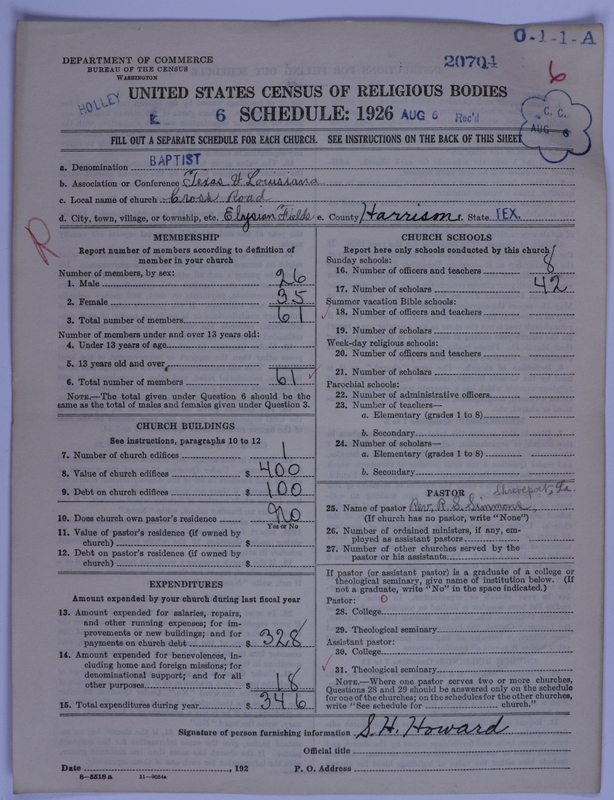 O-1-1-A
DEPARTMENT OF COMMERCE
BUREAU OF THE CENSUS
WASHINGTON
20704
6
HOLLEY
UNITED STATES CENSUS OF RELIGIOUS BODIES
E 6 SCHEDULE: 1926 AUG 6 Rec'd
C. C.
AUG 6
FILL OUT A SEPARATE SCHEDULE FOR EACH CHURCH. SEE INSTRUCTIONS ON THE BACK OF THIS SHEET
a. Denomination BAPTIST
b. Association or Conference Texas & Louisiana
c. Local name of church Cross Road
d. City, town, village, or township, etc. Elysian Fields e. County Harrison f. State TEX.
R
MEMBERSHIP
Report number of members according to definition of
member in your church
Number of members, by sex:
1. Male 26
2. Female 35
3. Total number of members 61
Number of members under and over 13 years old:
4. Under 13 years of age
5. 13 years old and over
6. Total number of members 61
NOTE.—The total given under Question 6 should be the
same as the total of males and females given under Question 3.
CHURCH BUILDINGS
See instructions, paragraphs 10 to 12
7. Number of church edifices 1
8. Value of church edifices $ 400
9. Debt on church edifices $ 100
10. Does church own pastor's residence No
Yes or No
11. Value of pastor's residence (if owned by
church) $
12. Debt on pastor's residence (if owned by
church) $
EXPENDITURES
Amount expended by your church during last fiscal year
13. Amount expended for salaries, repairs,
and other running expenses; for im-
provements or new buildings; and for
payments on church debt $ 328
14. Amount expended for benevolences, in-
cluding home and foreign missions; for
denominational support; and for all
other purposes $ 18
15. Total expenditures during year $ 346
CHURCH SCHOOLS
Report here only schools conducted by this church
Sunday schools:
16. Number of officers and teachers 8
17. Number of scholars 42
Summer vacation Bible schools:
18. Number of officers and teachers
19. Number of scholars
Week-day religious schools:
20. Number of officers and teachers
21. Number of scholars
Parochial schools:
22. Number of administrative officers
23. Number of teachers—
a. Elementary (grades 1 to 8)
b. Secondary
24. Number of scholars—
a. Elementary (grades 1 to 8)
b. Secondary
PASTOR Shreveport, La.
25. Name of pastor Rev. R. S. Simmons,
(If church has no pastor, write "None")
26. Number of ordained ministers, if any, em-
ployed as assistant pastors
27. Number of other churches served by the
pastor or his assistants
If pastor (or assistant pastor) is a graduate of a college or
theological seminary, give name of institution below. (If
not a graduate, write "No" in the space indicated.)
Pastor: 0
28. College
29. Theological seminary
Assistant pastor:
30. College
31. Theological seminary
NOTE.—Where one pastor serves two or more churches,
Questions 28 and 29 should be answered only on the schedule
for one of the churches; on the schedules for the other churches,
write "See schedule for church."
Signature of person furnishing information S. H. Howard
Official title
Date , 192 P. O. Address
8—5518a 11—9054a